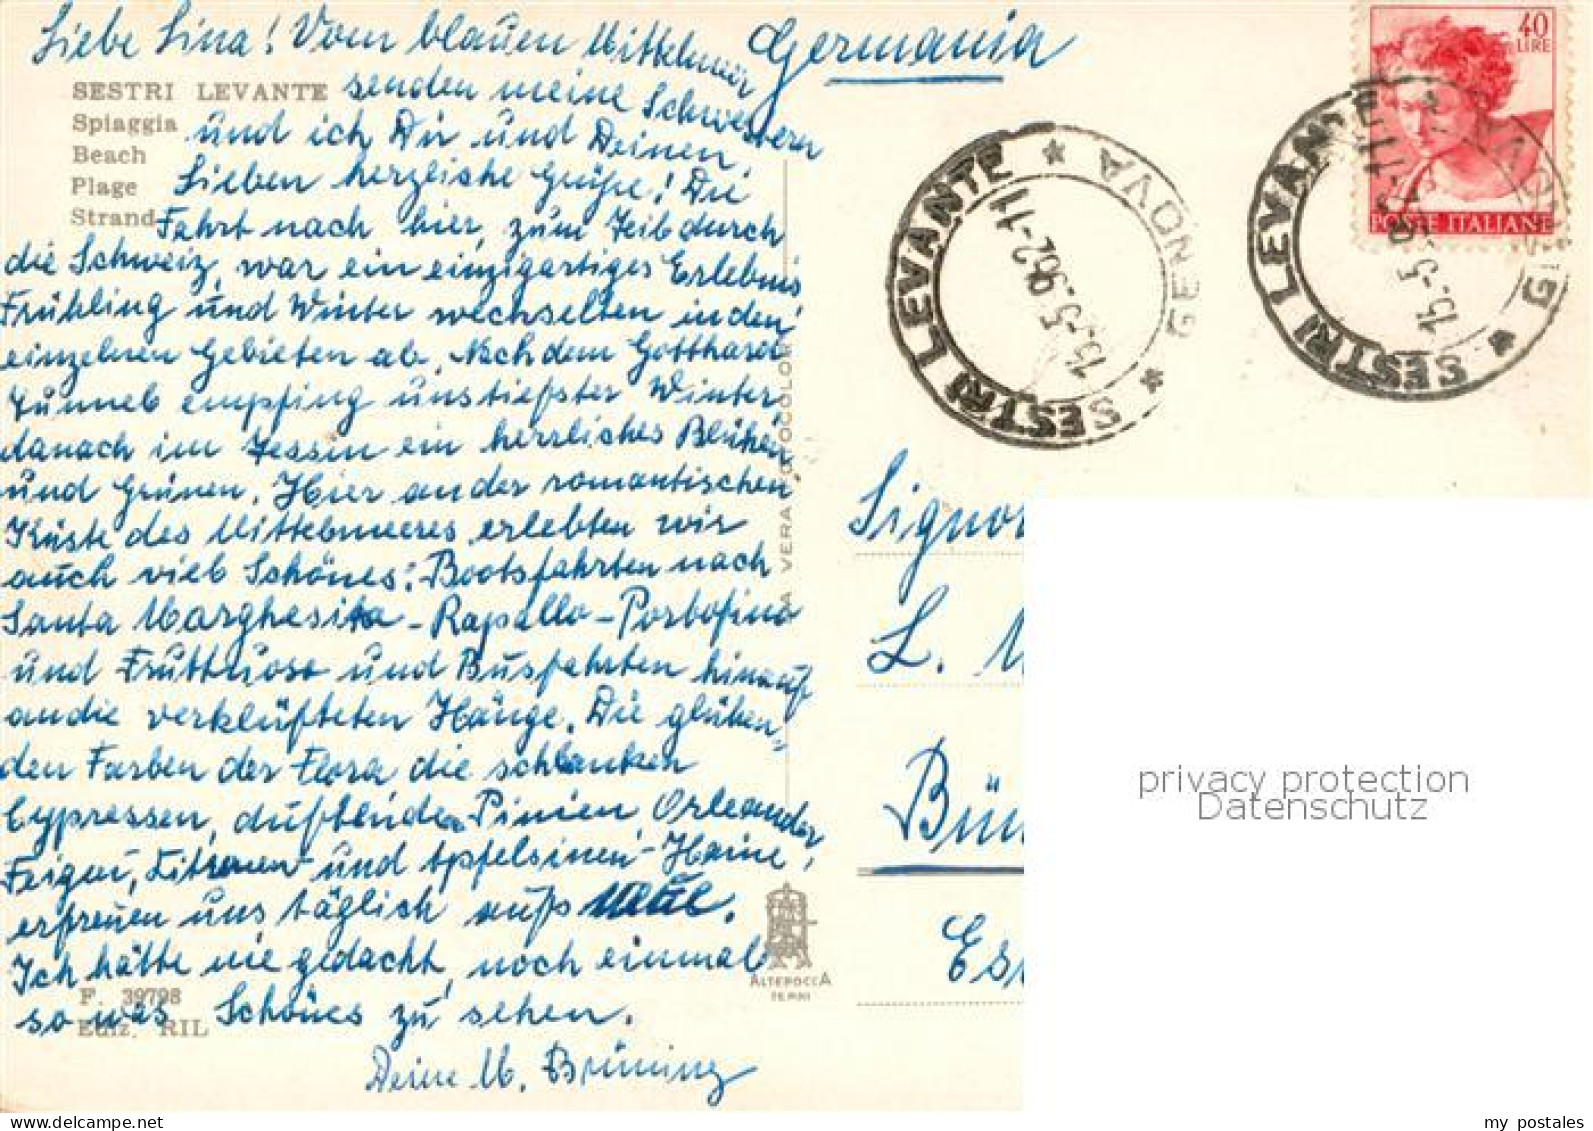 Liebe Lina! Vom blauen Mittelmeer
senden meine Schwestern
und ich Dir und Deinen
Lieben herzliche Grüße! Die
Fahrt nach hier, zum Teil durch
die Schweiz, war ein einzigartiges Erlebnis
Frühling und Winter wechselten in den
einzelnen Gebieten ab. Nach dem Gotthard
Tunnel empfing uns tiefster Winter,
danach im Tessin ein herrliches Blühen
und Grünen. Hier an der romantischen
Küste des Mittelmeeres erlebten wir
auch viel Schönes: Bootsfahrten nach
Santa Margherita - Rapallo - Portofino
und Fruttuoso und Busfahrten hinauf
an die verklüfteten Hänge. Die glühen-
den Farben der Flora die schlanken
Cypressen, duftende Pinien, Orleander,
Feigen, Zitronen- und Apfelsinen-Haine,
erfreuen uns täglich aufs neue.
Ich hätte nie gedacht, noch einmal
so was Schönes zu sehen.
Deine M. Brüning
SESTRI LEVANTE
Spiaggia
Beach
Plage
Strand
F. 39798
Ediz. RIL
VERA FOTOCOLOR
ALTEROCCA
TERNI
Germania
40
LIRE
POSTE ITALIANE
SESTRI LEVANTE * GENOVA *
15.-5.962-11
SESTRI LEVANTE * GENOVA *
15.-5.962-11
Signor
L. M
Bün
Es
privacy protection
Datenschutz
my postales